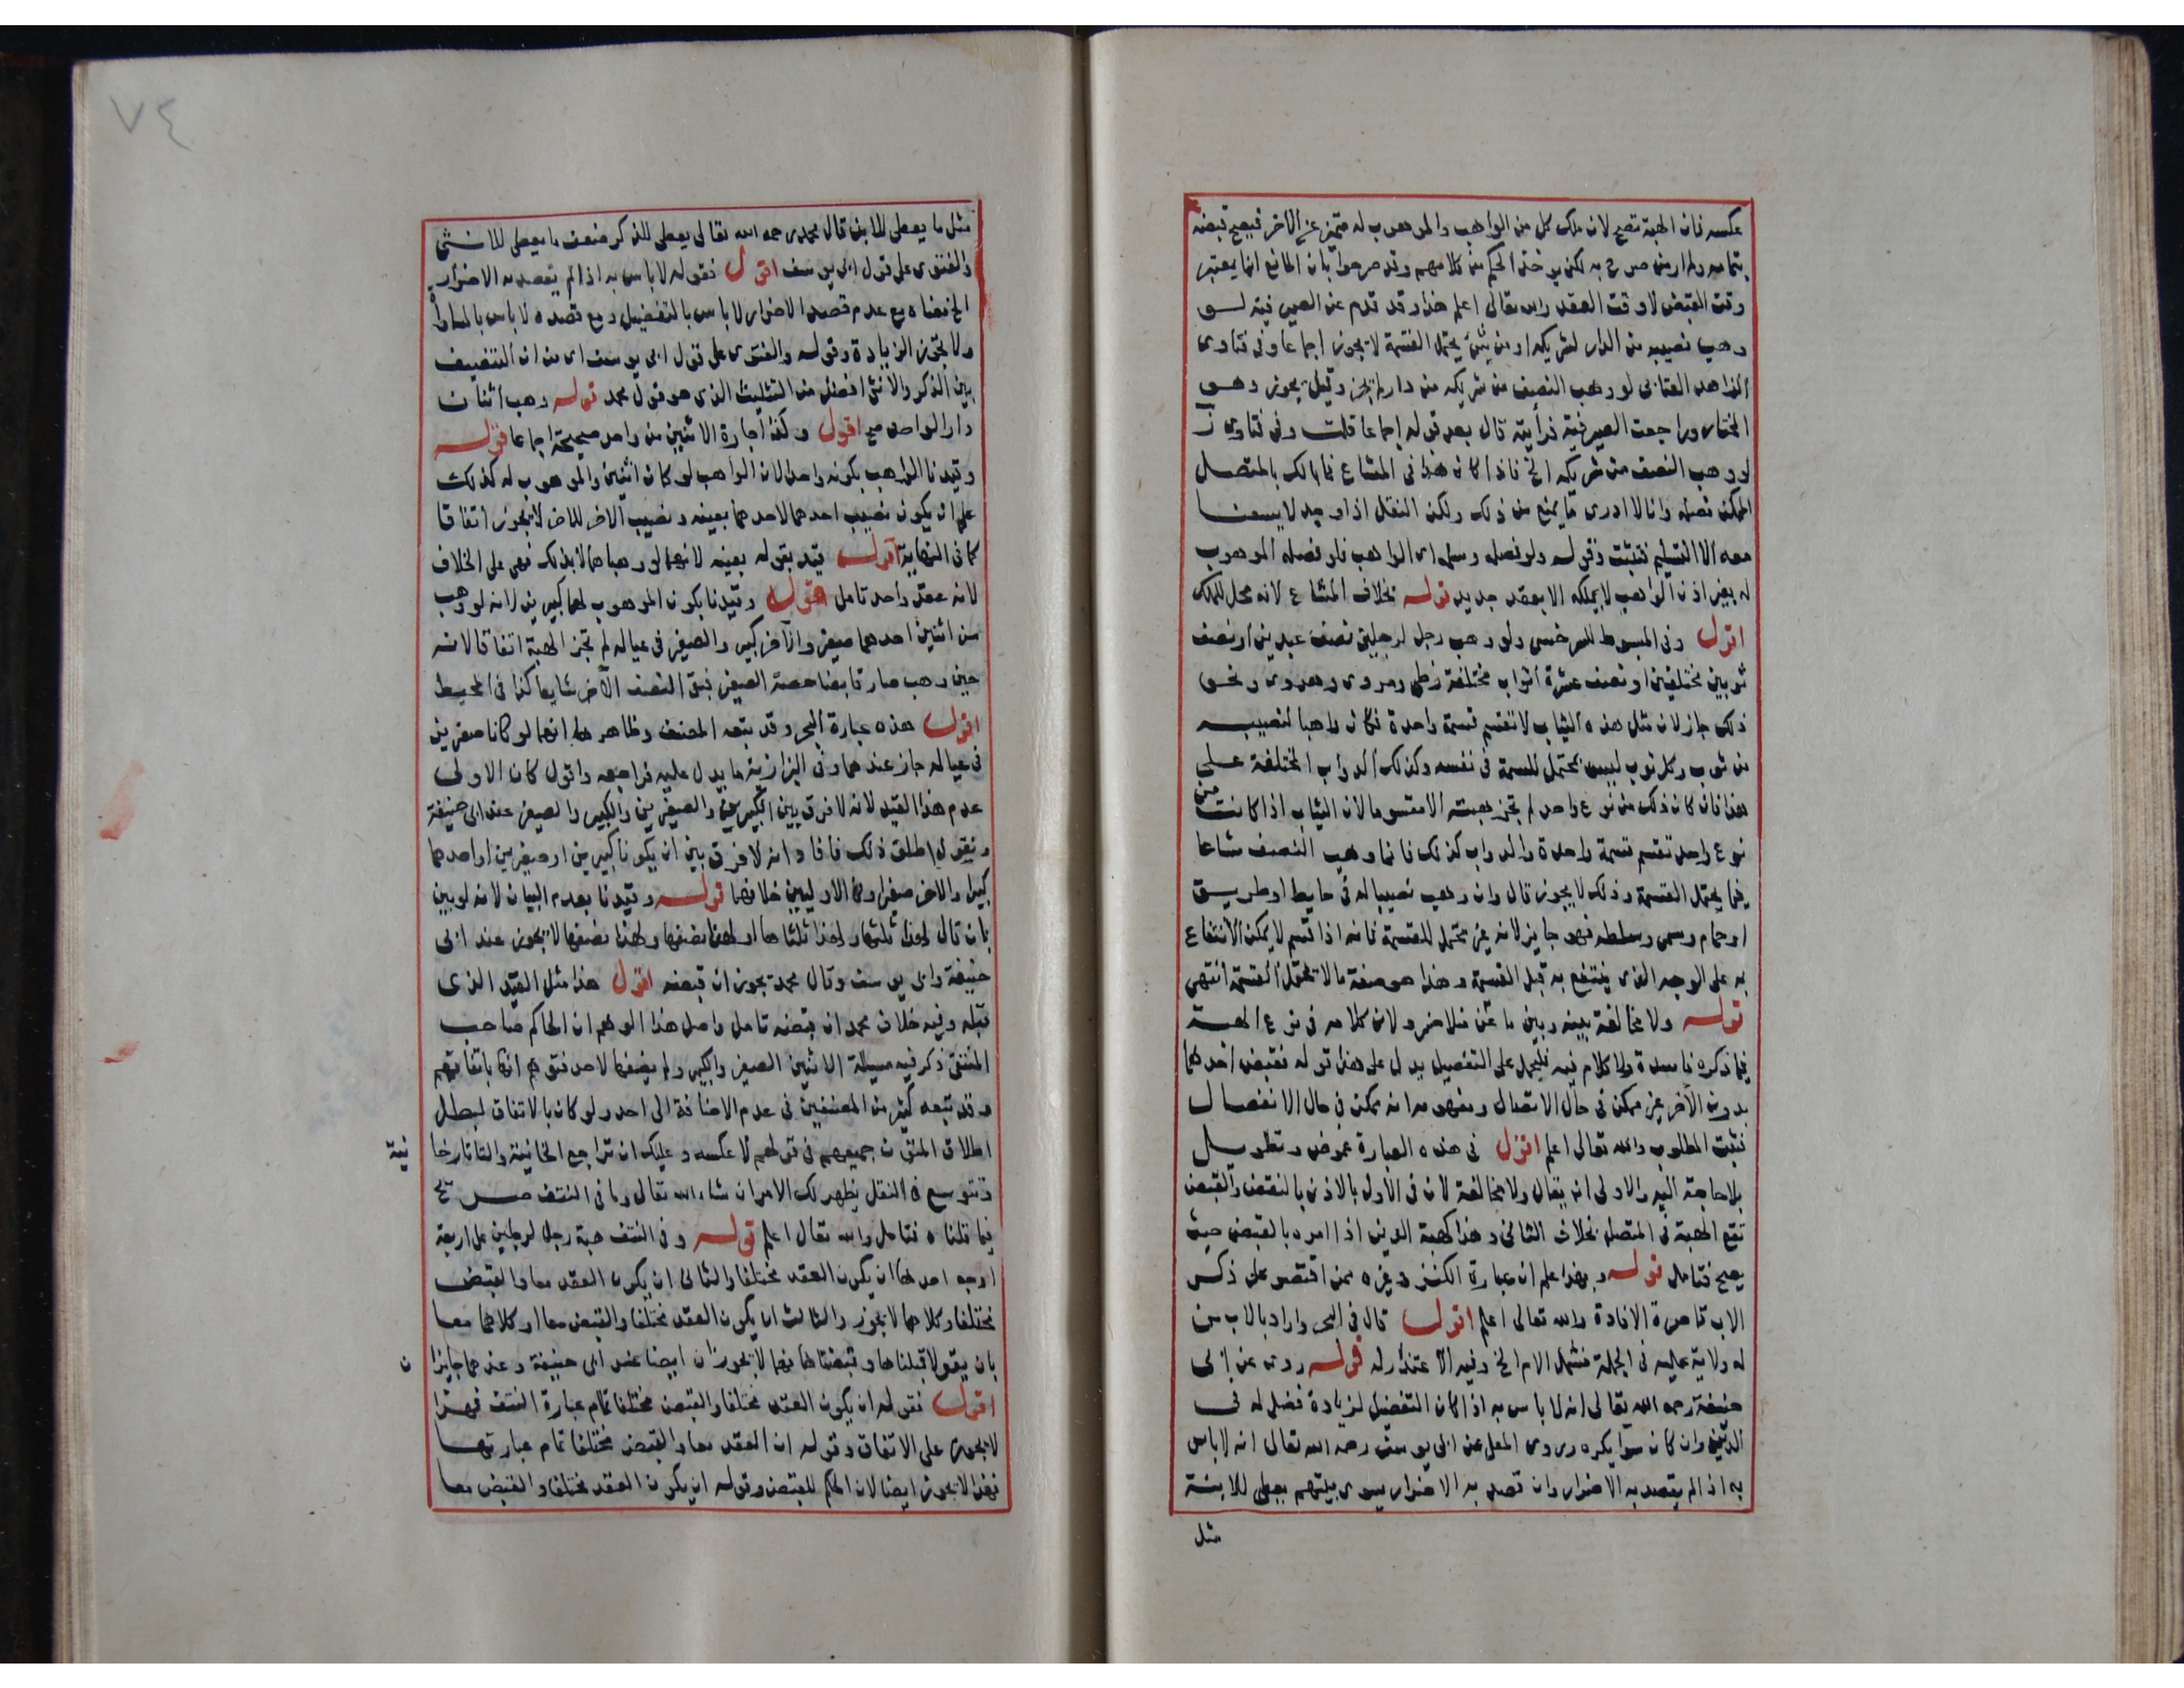 عكسه فان الهبة تصح لان ملك كل من الواهب والموهوب له متميز عن الاخر فيصح قبضه
بتمامه ولم ار من صرح به لكن يوخذ الحكم من كلامهم وقد صرحوا بان المانع انما يعتبر
وقت القبض لا وقت العقد والله تعالى اعلم هذا وقد قدم عن الصيرفية لو
وهب نصيبه من الدار لشريكه او من شئ يحتمل القسمة لا يجوز اجماعا وفى فتاوى
الزاهد العتابى لو وهب النصف من شريكه من دار لم يجز وقيل يجوز وهو
المختار وراجعت الصيرفية فرأيته قال بعد قوله اجماعا قلت وفى فتاوى
لو وهب النصف من شريكه الخ فاذا كان هذا فى المشاع فما بالك بالمتصل
الممكن فصله وانا لا ادرى ما يمنع من ذلك ولكن النقل اذا وجد لا يسعنا
معه الا التسليم فتثبت وقوله ولو فصله وسلمه اى الواهب فلو فصله الموهوب
له بغير اذن الواهب لا يملكه الا بعقد جديد قوله بخلاف المشاع لانه محل للملك
اقول وفى المبسوط للسرخسى ولو وهب رجل لرجلين نصف عبدين او نصف
ثوبين مختلفين او نصف عشرة اثواب مختلفة زطى ومروى وهروى ونحو
ذلك جاز لان مثل هذه الثياب لا تقسم قسمة واحدة فكان واهبا لنصيبه
من ثوب وكل ثوب ليس يحتمل للقسمة فى نفسه وكذلك الدواب المختلفة على
هذا فان كان ذلك من نوع واحد لم تجز هبته الا مقسوما لان الثياب اذا كانت من
نوع واحد تقسم قسمة واحدة والدواب كذلك فانما وهب النصف مشاعا
فيما يحتمل القسمة وذلك لا يجوز قال وان وهب نصيبا له فى حايط او طريق
او حمام وسمى وسلطه فهو جايز لانه غير محتمل للقسمة فانه اذا قسم لا يمكن الانتفاع
به على الوجه الذى ينتفع به قبل القسمة وهذا هو صفة ما لا يحتمل القسمة انتهى
قوله ولا مخالفة بينه وبين ما عن ملا خسرو لان كلامه فى نوع الهبة
فيما ذكره فاسدة ولا كلام فيه فليحمل على التفصيل يدل على هذا قوله فقبض احدهما
بدون الآخر غير ممكن فى حال الاتصال ومفهومه انه ممكن فى حال الانفصال
فثبت المطلوب والله تعالى اعلم اقول فى هذه العبارة غموض وتطويل
بلا حاجة اليه والاولى ان يقال ولا مخالفة لان فى الاول بالاذن بالنقض والقبض
تقع الهبة فى المتصل بخلاف الثانى وهذا كهبة الدين اذا امره بالقبض حيث
يصح فتامل قوله وبهذا علم ان عبارة الكنز وغيره ممن اقتصر على ذكر
الاب قاصرة الافادة والله تعالى اعلم اقول قال فى البحر واراد بالاب من
له ولاية عليه فى الجملة فشمل الام الخ وفيه الاعتذار له قوله روى عن ابى
حنيفة رحمه الله تعالى انه لا باس به اذا كان التفضيل لزيادة فضل له فى
الدين وان كان سوا يكره وروى المعلى عن ابى يوسف رحمه الله تعالى انه لا باس
به اذا لم يقصد به الاضرار وان قصد به الاضرار يسوى بينهم يعطى للابنة
مثل
٧٤
مثل ما يعطى للابن قال محمد رحمه الله تعالى يعطى للذكر ضعف ما يعطى للانثى
والفتوى على قول ابى يوسف اقول فقوله لا باس به اذا لم يقصد به الاضرار
الخ معناه مع عدم قصد الاضرار لا باس بالتفضيل ومع قصده لا باس بالمساواة
ولا يجوز الزيادة وقوله والفتوى على قول ابى يوسف اى من ان التنصيف
بين الذكر والانثى افضل من التثليث الذى هو قول محمد قوله وهب اثنان
دارا لواحد صح اقول وكذا اجارة الاثنين من واحد صحيحة اجماعا قوله
وقيدنا الواهب بكونه واحدا لان الواهب لو كان اثنين والموهوب له كذلك
على ان يكون نصيب احدهما لاحدهما بعينه ونصيب الاخر للاخر لا يجوز اتفاقا
كما فى النهاية اقول قيد بقوله بعينه لانهما لو وهباهما لا بذلك فهى على الخلاف
لانه عقد واحد تامل قوله وقيدنا بكون الموهوب لهما كبيرين لانه لو وهب
من اثنين احدهما صغير والآخر كبير والصغير فى عياله لم تجز الهبة اتفاقا لانه
حين وهب صار قابضا حصة الصغير فبقى النصف الآخر شايعا كذا فى المحيط
اقول هذه عبارة البحر وقد تبعه المصنف وظاهرها انهما لو كانا صغيرين
فى عياله جاز عندهما وفى البزازية ما يدل عليه فراجعه واقول كان الاولى
عدم هذا القيد لانه لا فرق بين الكبيرين والصغيرين والكبير والصغير عند ابى حنيفة
ويقول اطلق ذلك فافاد انه لا فرق بين ان يكونا كبيرين او صغيرين او احدهما
كبيرا والاخر صغيرا وفى الاوليين خلافهما قوله وقيدنا بعدم البيان لانه لو بين
بان قال لهذا ثلثها ولهذا ثلثاها او لهذا نصفها ولهذا نصفها لا يجوز عند ابى
حنيفة وابى يوسف وقال محمد يجوز ان قبضه اقول هذا مثل القيد الذى
قبله وفيه خلاف محمد ان قبضه تامل واصل هذا الوهم ان الحاكم صاحب
المنتقى ذكر فيه مسيلة الاثنين الصغير والكبير ولم يضفها لاحد فتوهم انها باتفاقهم
وقد تبعه كثير من المصنفين فى عدم الاضافة الى احد ولو كان بالاتفاق لبطل
اطلاق المتون جميعهم فى قولهم لا عكسه وعليك ان تراجع الخانية والتاتارخا
نية
وتتوسع فى النقل يظهر لك الامر ان شاء الله تعالى وما فى النتف صريح
فيما قلناه فتامل والله تعالى اعلم قوله وفى النتف هبة رجل لرجلين على اربعة
اوجه احدها ان يكون العقد مختلفا والثانى ان يكون العقد معا والقبض
مختلفا وكلاهما لا يجوز والثالث ان يكون العقد مختلفا والقبض معا او كلاهما معا
بان يقولا قبلناها وقبضناها فهما لا يجوزان ايضا عند ابى حنيفة وعندهما جايزا
ن
اقول فقوله ان يكون العقد مختلفا والقبض مختلفا تمام عبارة النتف فهذا
لا يجوز على الاتفاق وقوله ان العقد معا والقبض مختلفا تمام عبارتها
فهذا لا يجوز ايضا لان الحكم للقبض وقوله ان يكون العقد مختلفا والقبض معا